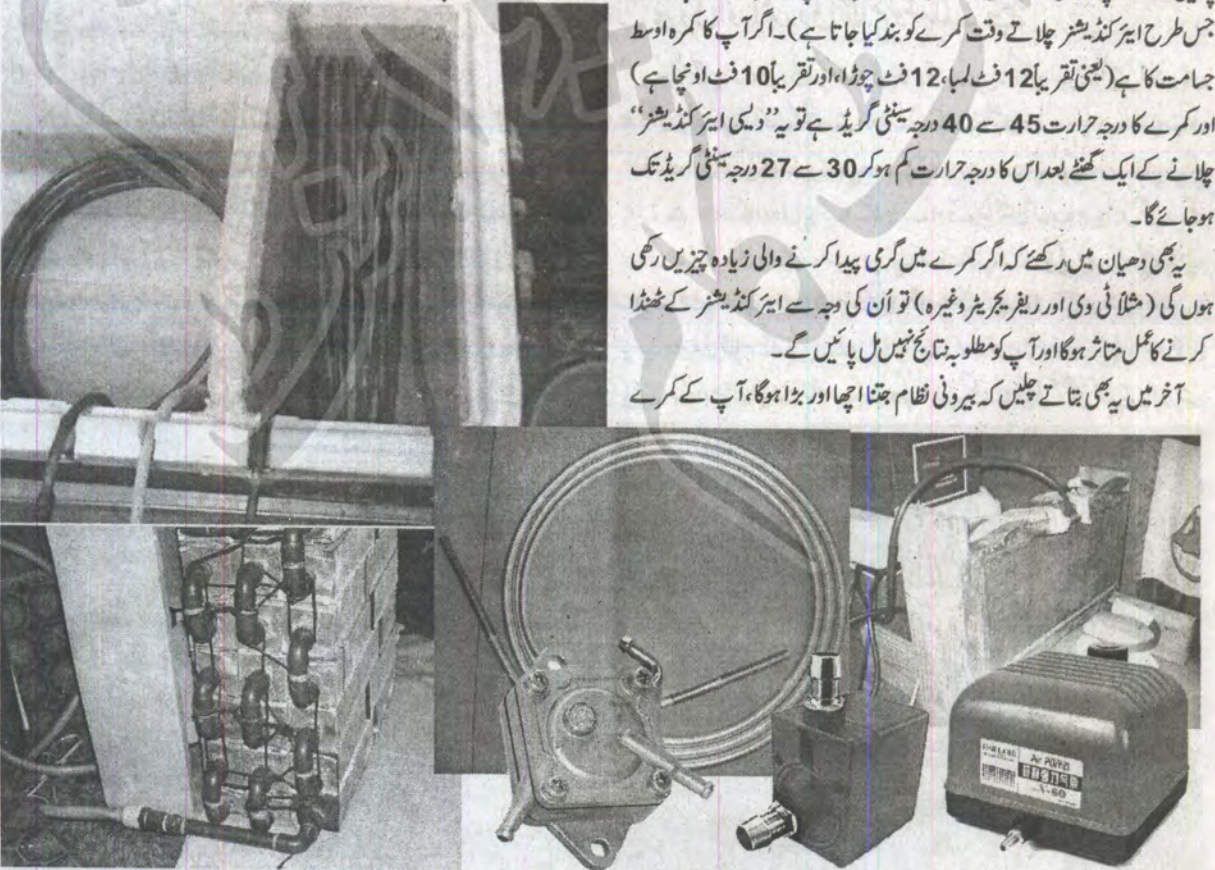 جس طرح ایئر کنڈیشنر چلاتے وقت کمرے کو بند کیا جاتا ہے)۔ اگر آپ کا کمرہ اوسط
جسامت کا ہے (یعنی تقریباً 12 فٹ لمبا، 12 فٹ چوڑا، اور تقریباً 10 فٹ اونچا ہے)
اور کمرے کا درجہ حرارت 45 سے 40 درجہ سینٹی گریڈ ہے تو یہ ”دیسی ایئر کنڈیشنر“
چلانے کے ایک گھنٹے بعد اس کا درجہ حرارت کم ہوکر 30 سے 27 درجہ سینٹی گریڈ تک
ہوجائے گا۔
یہ بھی دھیان میں رکھئے کہ اگر کمرے میں گرمی پیدا کرنے والی زیادہ چیزیں رکھی
ہوں گی (مثلاً ٹی وی اور ریفریجریٹر وغیرہ) تو اُن کی وجہ سے ایئر کنڈیشنر کے ٹھنڈا
کرنے کا عمل متاثر ہوگا اور آپ کو مطلوبہ نتائج نہیں مل پائیں گے۔
آخر میں یہ بھی بتاتے چلیں کہ بیرونی نظام جتنا اچھا اور بڑا ہوگا، آپ کے کمرے
Air POMPS